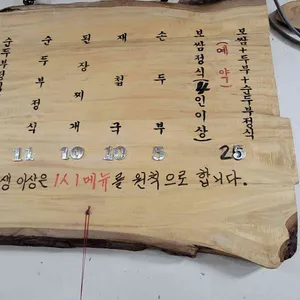 순두부정식
된장찌개
재첩국
손두부
보쌈정식(4인이상)
(예약)
보쌈+두부+순두부정식
11 10 10 5 25
생 이상은 1人1메뉴를 원칙으로 합니다.